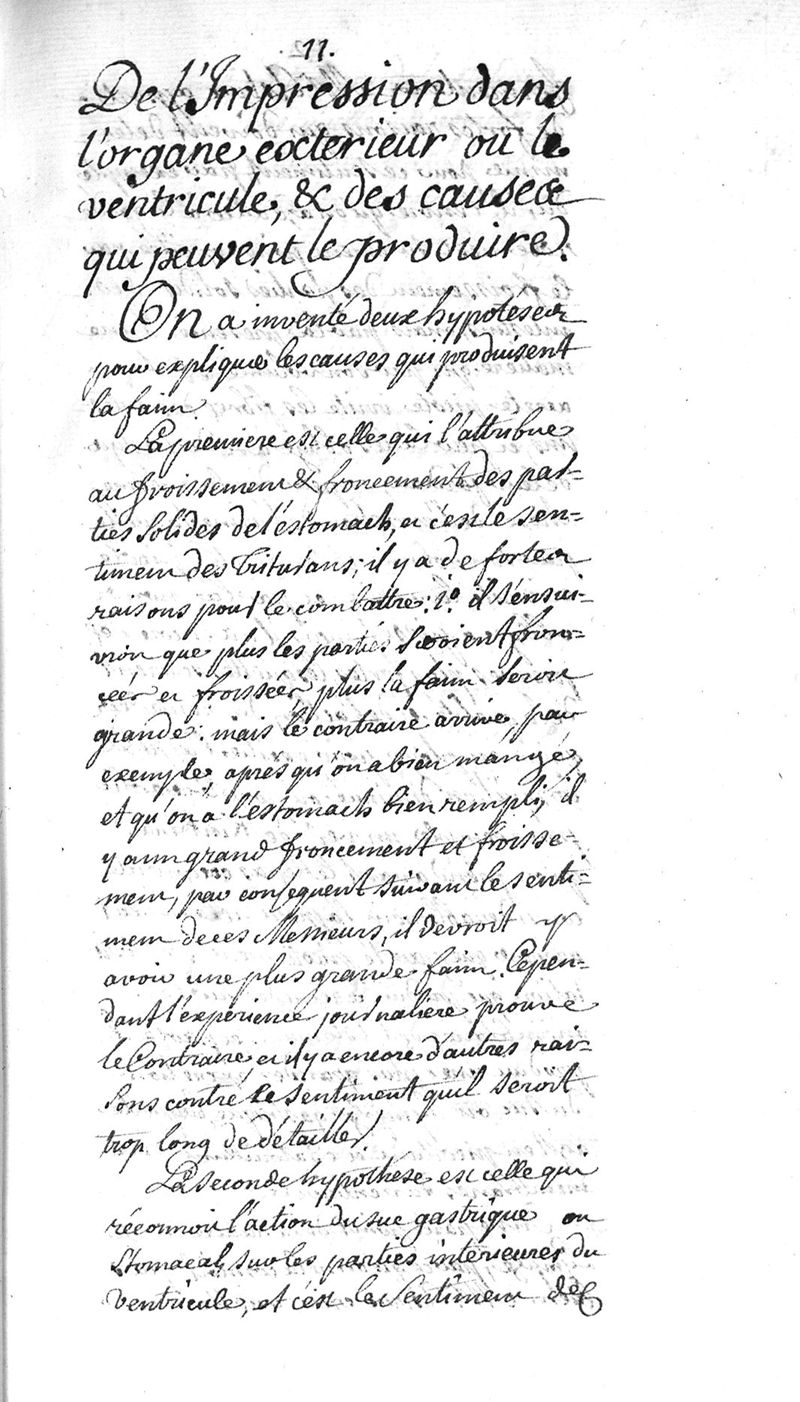 11.
De l'Impression dans
l'organe exterieur ou le
ventricule, & des causes
qui peuvent le produire.
On a inventé deux hypotéses
pour expliquer les causes qui produisent
la faim.
La premiere est celle qui l'attribue
au froissement & froncement des par-
ties solides de l'éstomach, et c'est le sen-
timent des Triturans; il y a de fortes
raisons pour le combattre: 1.° il s'ensui-
vroit que plus les parties seroient fron-
cées et froissées, plus la faim seroit
grande: mais le contraire arrive, par
exemple, aprés qu'on a bien mangé,
et qu'on a l'estomach bien rempli, il
y a un grand froncement et froisse-
ment, par conséquent suivant le senti-
ment de ces Messieurs, il devroit y
avoir une plus grande faim. Cépen-
dant l'expérience journaliere prouve
le Contraire, et il y a encore d'autres rai-
sons contre ce sentiment qu'il seroit
trop long de détailler.
La seconde hypothése est celle qui
réconnoit l'action du suc gastrique ou
Stomacal, sur les parties intérieures du
Ventricule, et c'est le Sentiment des